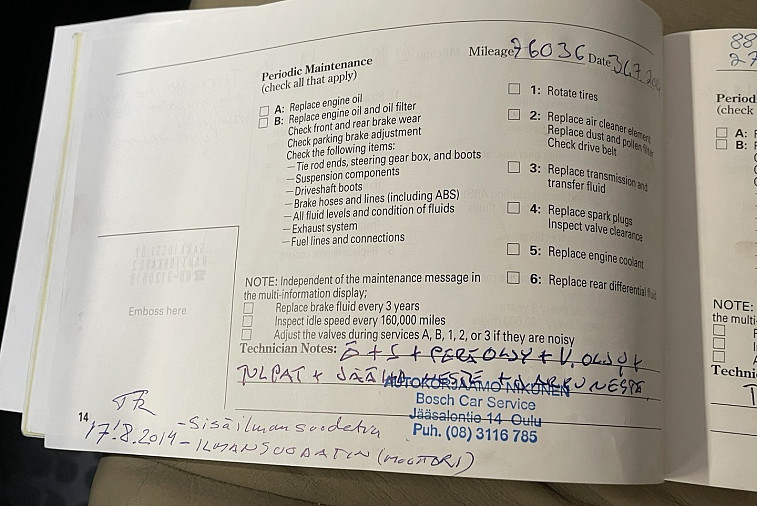 Mileage 76036 Date
Periodic Maintenance
(check all that apply)
A: Replace engine oil
B: Replace engine oil and oil filter
Check front and rear brake wear
Check parking brake adjustment
Check the following items:
—Tie rod ends, steering gear box, and boots
—Suspension components
—Driveshaft boots
—Brake hoses and lines (including ABS)
—All fluid levels and condition of fluids
—Exhaust system
—Fuel lines and connections
1: Rotate tires
2: Replace air cleaner element
Replace dust and pollen filter
Check drive belt
3: Replace transmission and
transfer fluid
4: Replace spark plugs
Inspect valve clearance
5: Replace engine coolant
6: Replace rear differential fluid
NOTE: Independent of the maintenance message in
the multi-information display;
Replace brake fluid every 3 years
Inspect idle speed every 160,000 miles
Adjust the valves during services A, B, 1, 2, or 3 if they are noisy
Technician Notes: Ö + S + PERÄÖLJY + V.ÖLJY +
TULPAT + JÄÄHD.NESTE + JARRUNESTE
AUTOKORJAAMO NIKUNEN
Bosch Car Service
Jääsalontie 14 Oulu
Puh. (08) 3116 785
Emboss here
14
17.8.2014 - Sisäilmansuodatin
- ILMANSUODATIN (MOOTTORI)
88
27
Period
(check
A:
B:
NOTE:
the multi-
Techni